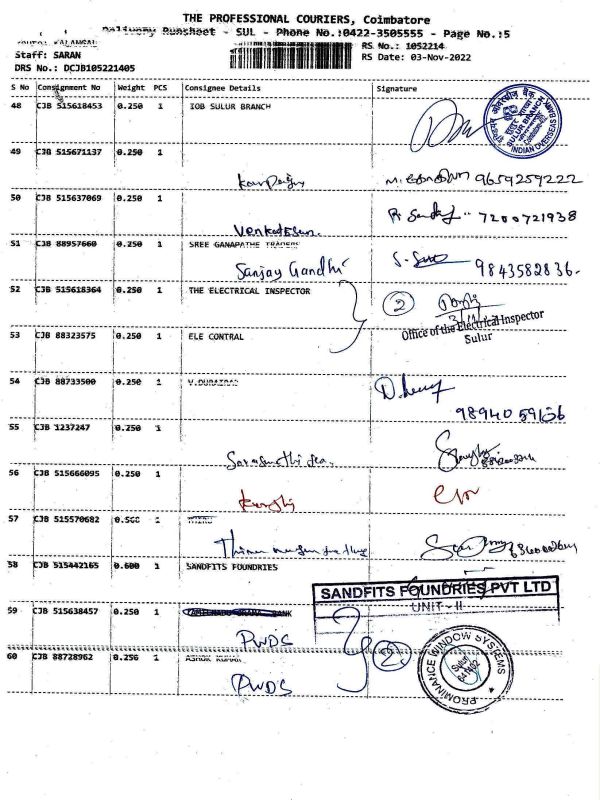 THE PROFESSIONAL COURIERS, Coimbatore
Delivery Runsheet - SUL - Phone No.:0422-3505555 - Page No.:5
KALANGAL
RS No.: 1052214
Staff: SARAN
RS Date: 03-Nov-2022
DRS No.: DCJB105221405
S No Consignment No Weight PCS Consignee Details Signature
48 CJB 515618453 0.250 1 IOB SULUR BRANCH
SULUR BRANCH
INDIAN OVERSEAS BANK
49 CJB 515671137 0.250 1
9659259222
50 CJB 515637069 0.250 1
Venkatesan. 7200721938
51 CJB 88957660 0.250 1 SREE GANAPATHE TRADERS
Sanjay Gandhi 9843582836.
52 CJB 515618364 0.250 1 THE ELECTRICAL INSPECTOR
2
Office of the Electrical Inspector
Sulur
53 CJB 88323575 0.250 1 ELE CONTRAL
54 CJB 88733500 0.250 1 V.DURAIRAJ
55 CJB 1237247 0.250 1
56 CJB 515666095 0.250 1
57 CJB 515570682 0.500 1
58 CJB 515442165 0.600 1 SANDFITS FOUNDRIES
SANDFITS FOUNDRIES PVT LTD
UNIT - II
59 CJB 515638457 0.250 1 BANK
PWDS
2
PROMINANCE WINDOW SYSTEMS
Sulur
641402
60 CJB 88728962 0.250 1 ASHOK KUMAR
PWDS